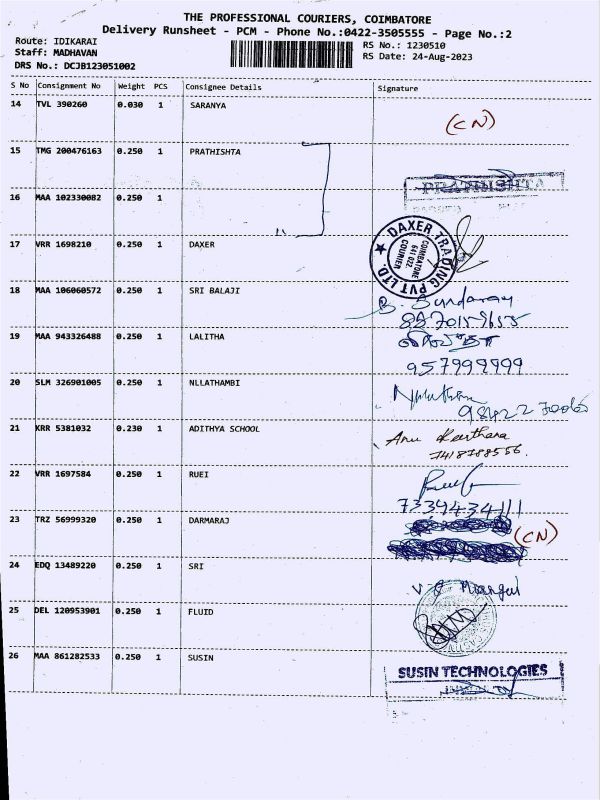 THE PROFESSIONAL COURIERS, COIMBATORE
Delivery Runsheet - PCM - Phone No.:0422-3505555 - Page No.:2
Route: IDIKARAI
RS No.: 1230510
Staff: MADHAVAN
RS Date: 24-Aug-2023
DRS No.: DCJB123051002
S No Consignment No Weight PCS Consignee Details Signature
14 TVL 390260 0.030 1 SARANYA
(CN)
15 TMG 200476163 0.250 1 PRATHISHTA
PRATHISHTA
16 MAA 102330082 0.250 1
17 VRR 1698210 0.250 1 DAXER
DAXER TRADING PVT LTD.
COIMBATORE
641 022
COURIER
18 MAA 106060572 0.250 1 SRI BALAJI
B. Sundaray
19 MAA 943326488 0.250 1 LALITHA
957999999
20 SLM 326901005 0.250 1 NLLATHAMBI
21 KRR 5381032 0.230 1 ADITHYA SCHOOL
Anu Keerthana
7418788556.
22 VRR 1697584 0.250 1 RUEI
7339434111
23 TRZ 56999320 0.250 1 DARMARAJ
(CN)
24 EDQ 13489220 0.250 1 SRI
25 DEL 120953901 0.250 1 FLUID
26 MAA 861282533 0.250 1 SUSIN
SUSIN TECHNOLOGIES